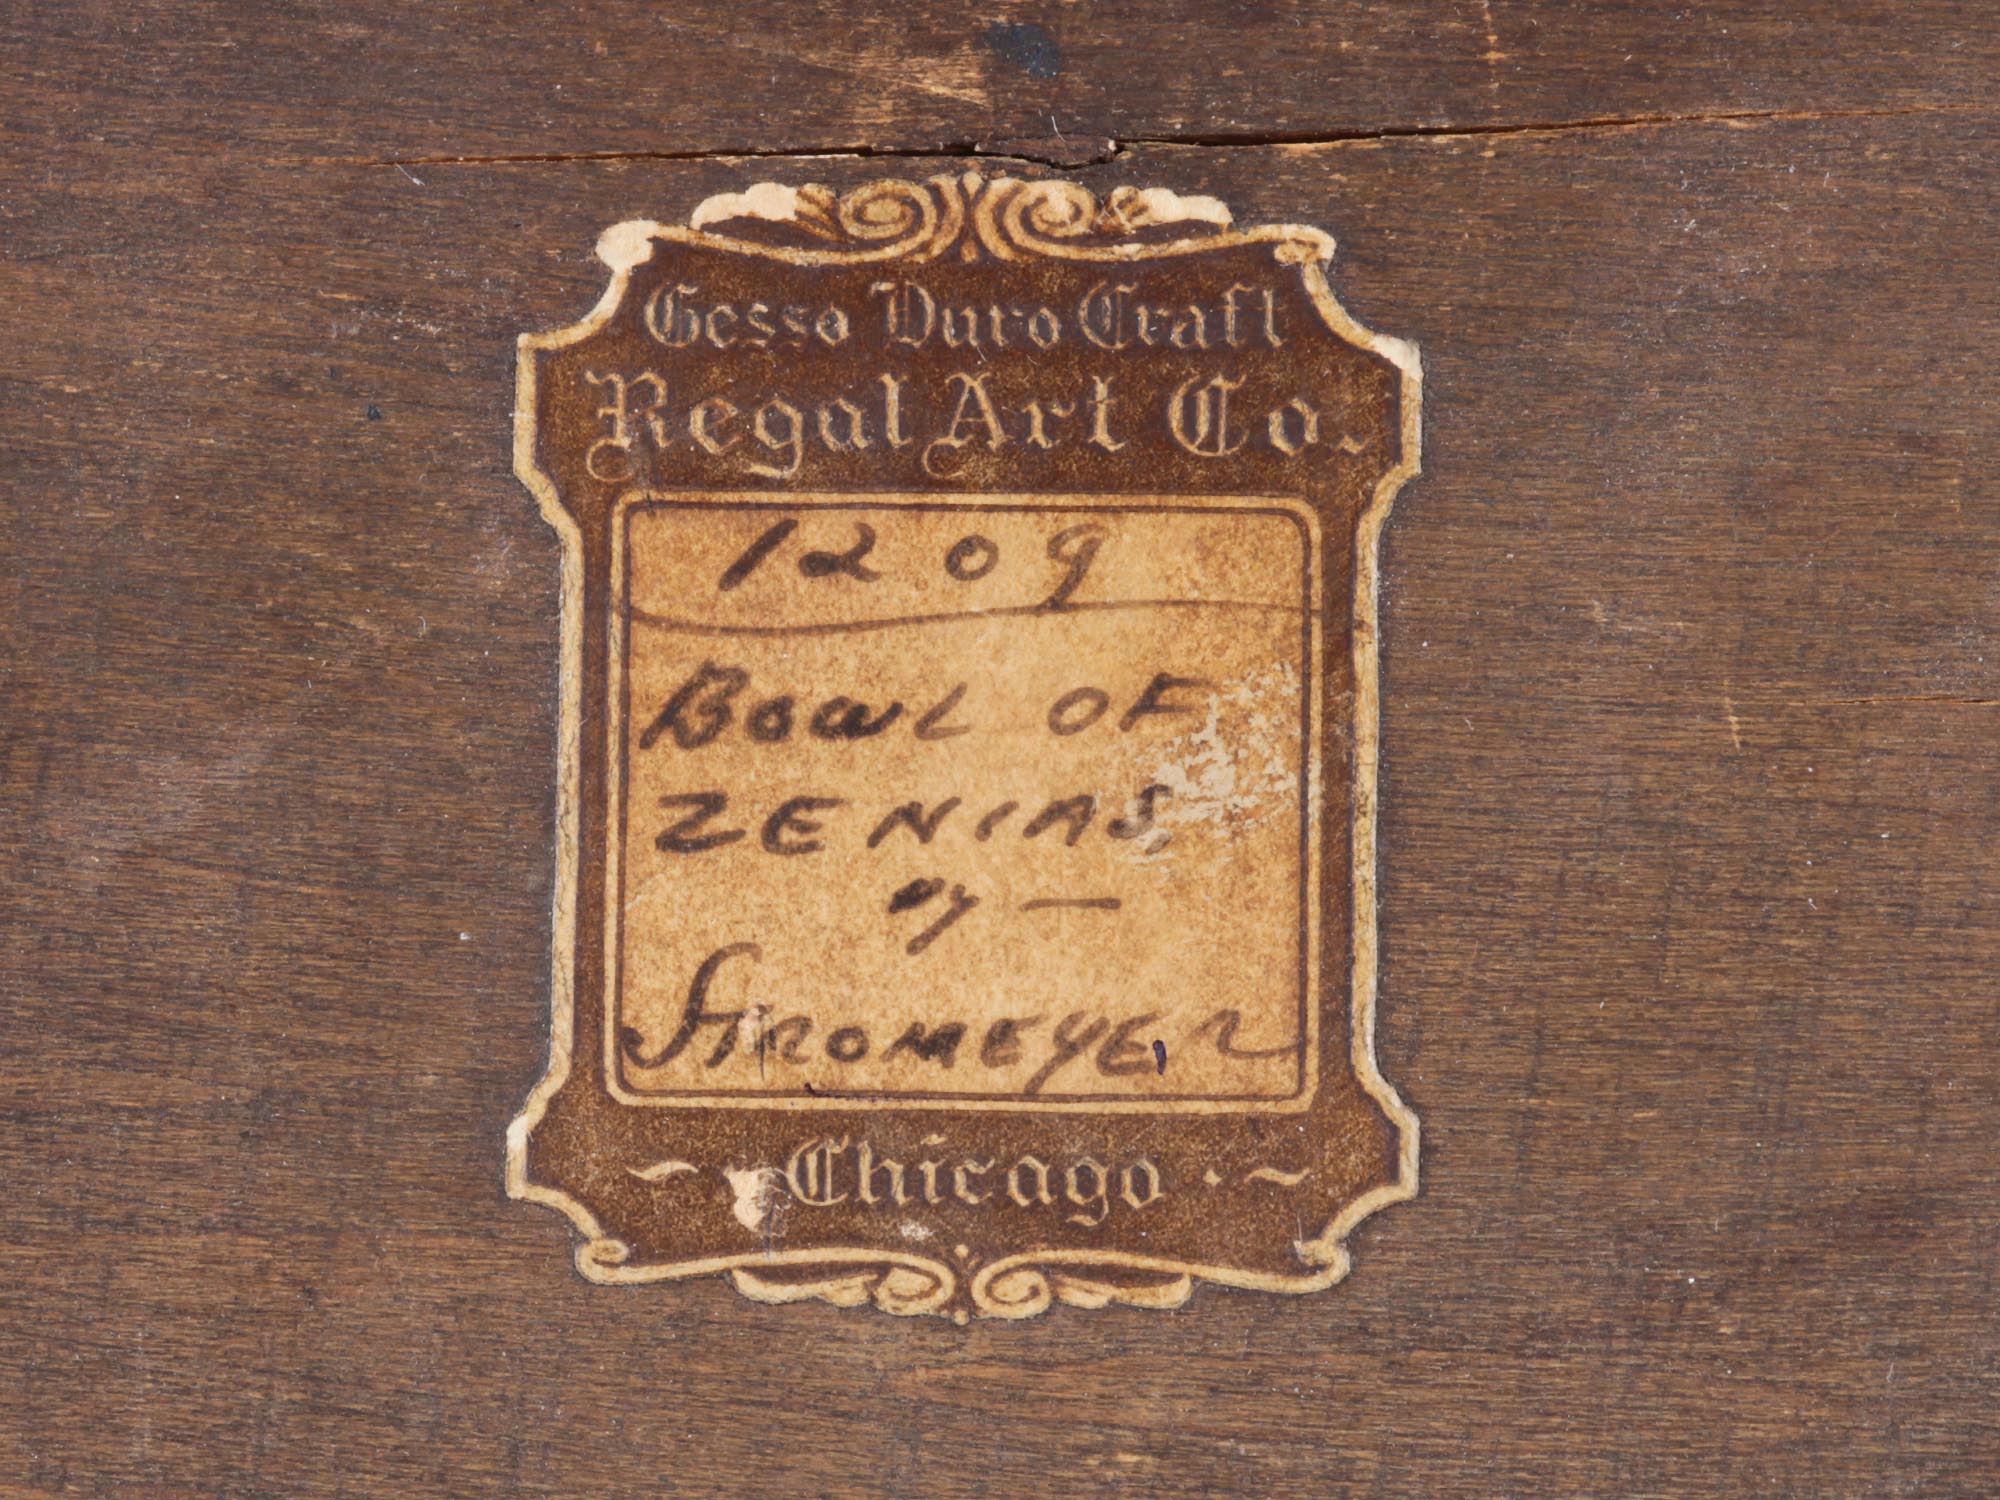 Gesso Duro Craft
Regal Art Co.
1209
BOWL OF
ZENIAS,
by —
STROMEYER
~ Chicago · ~